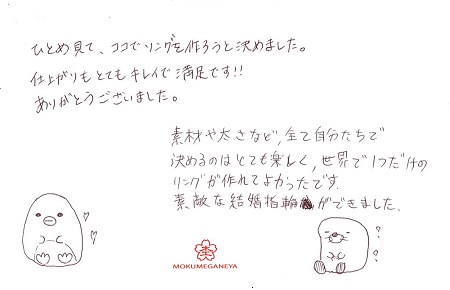 ひとめ見て、ココでリングを作ろうと決めました。
仕上がりもとてもキレイで満足です!!
ありがとうございました。
素材や太さなど、全て自分たちで
決めるのはとても楽しく、世界で1つだけの
リングが作れてよかったです。
素敵な結婚指輪ができました。
MOKUMEGANEYA